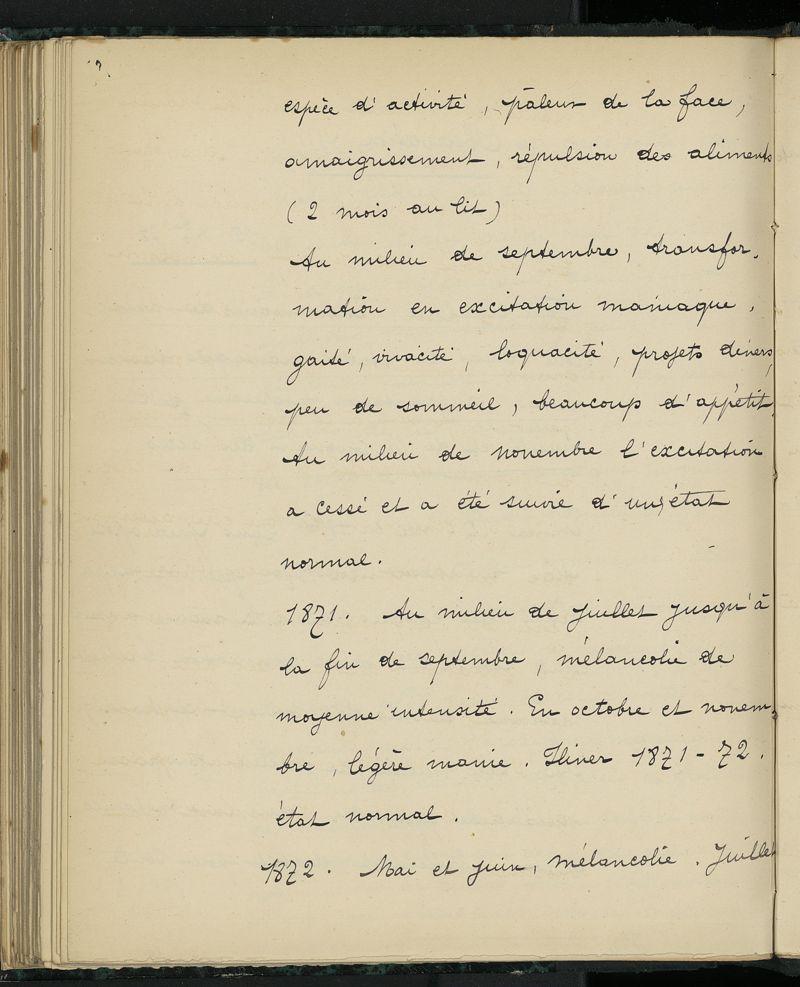 espèce d'activité, pâleur de la face,
amaigrissement, répulsion des aliments
(2 mois au lit)
Au milieu de septembre, transfor-
mation en excitation maniaque.
gaité, vivacité, loquacité, projets divers,
peu de sommeil, beaucoup d'appétit.
Au milieu de novembre l'excitation
a cessé et a été suivie d'un état
normal.
1871. Au milieu de juillet jusqu'à
la fin de septembre, mélancolie de
moyenne intensité. En octobre et novem-
bre, légère manie. Hiver 1871-72.
état normal.
1872. Mai et juin, mélancolie. Juillet